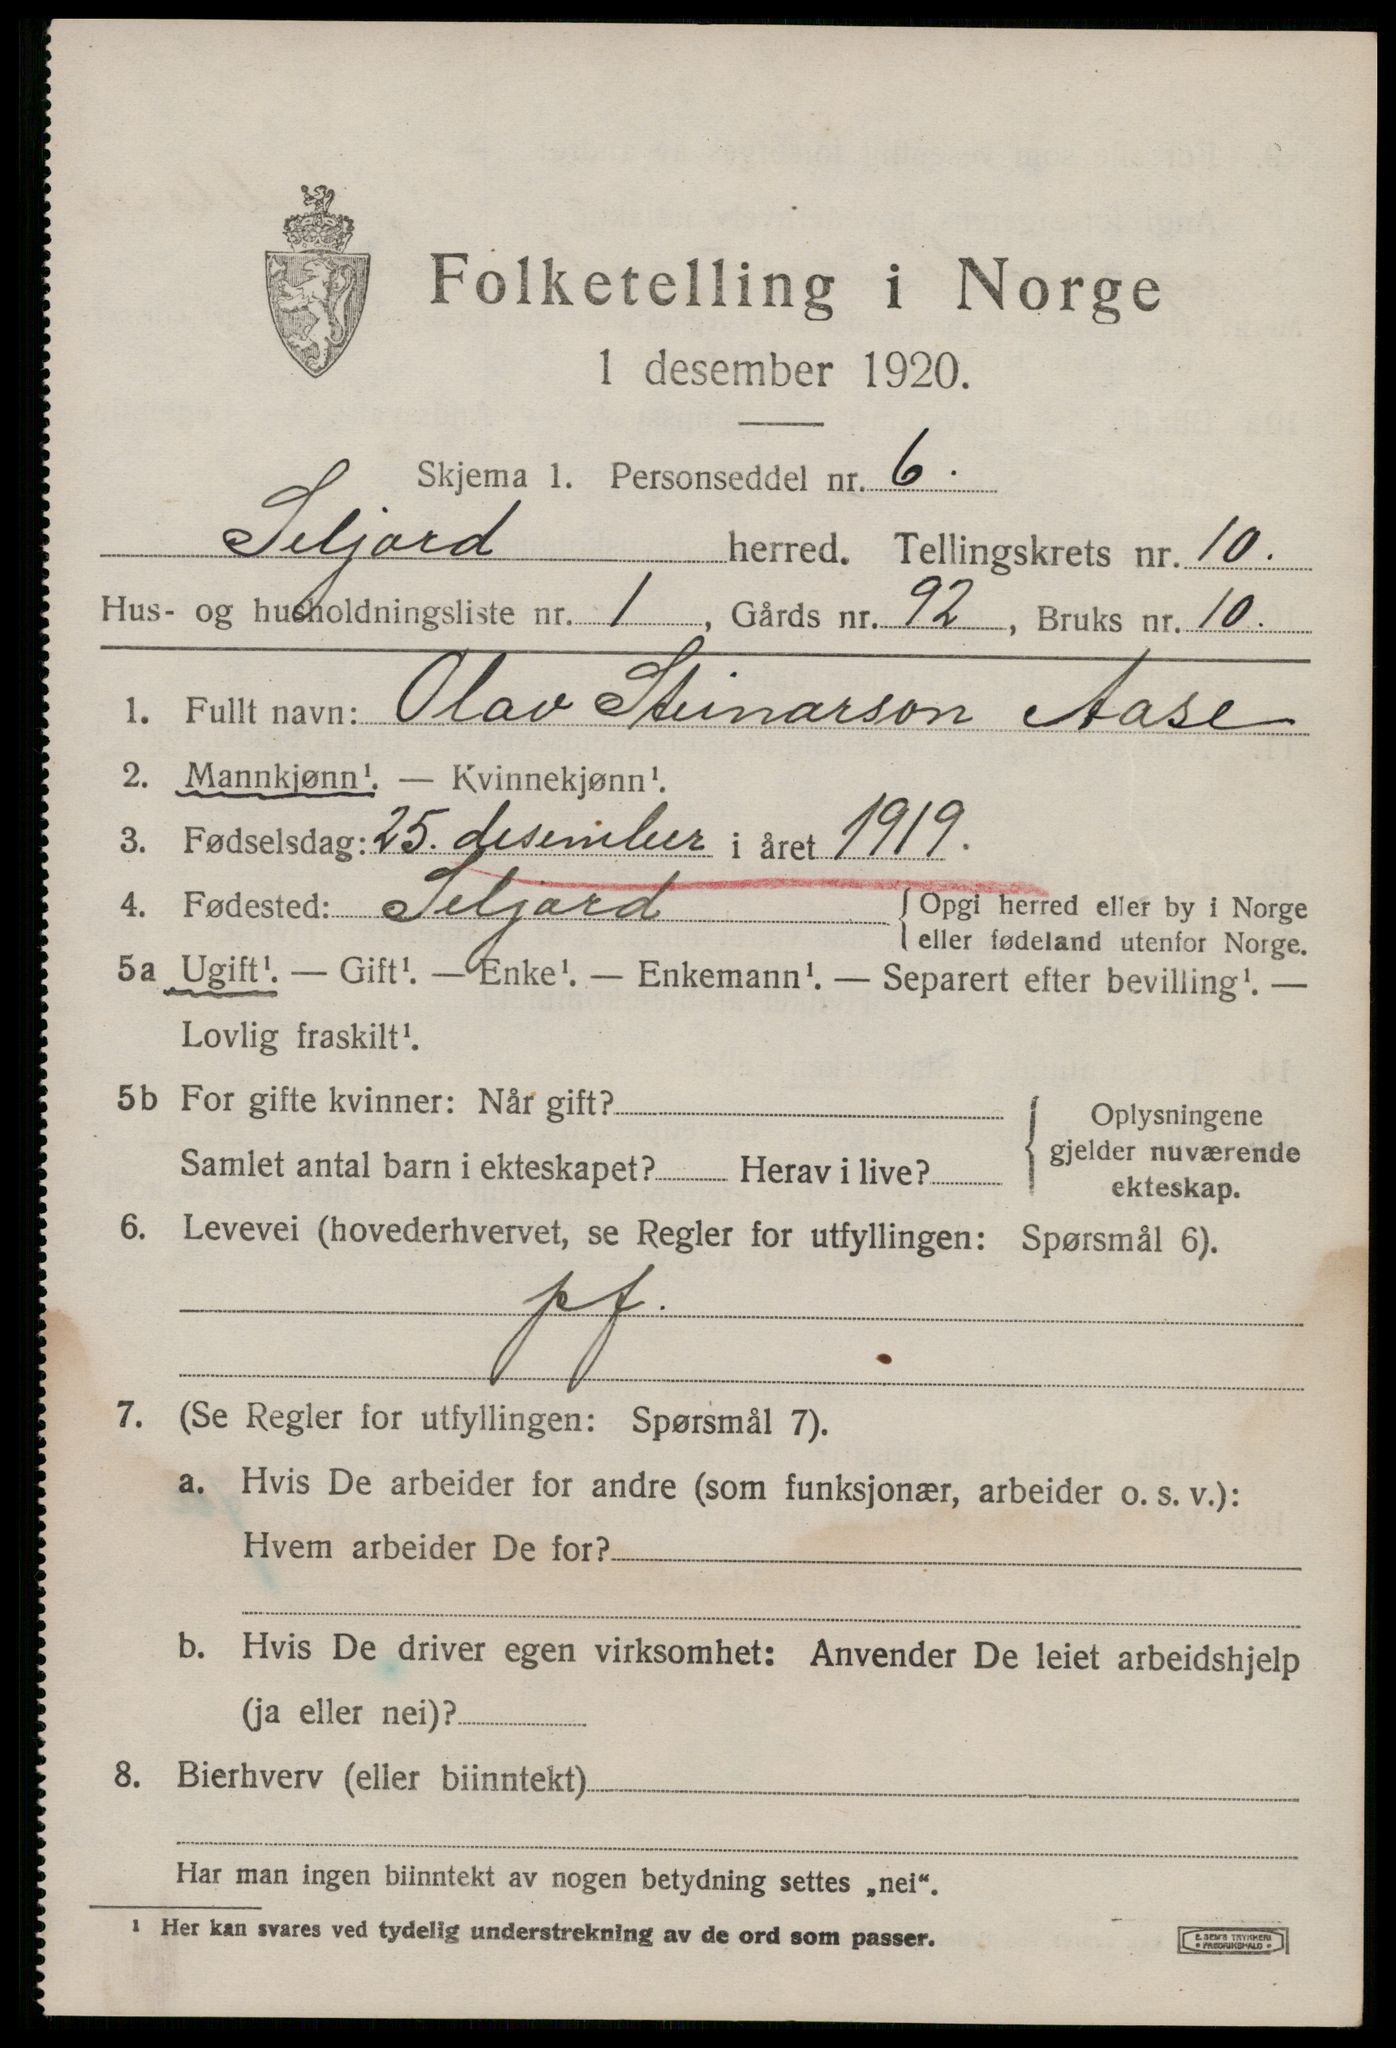 Folketelling i Norge
1 desember 1920.
Skjema 1. Personseddel nr. 6.
Seljord herred. Tellingskrets nr. 10.
Hus- og husholdningsliste nr. 1, Gårds nr. 92, Bruks nr. 10.
1. Fullt navn: Olav Steinarson Aase
2. Mannkjønn¹. — Kvinnekjønn¹.
3. Fødselsdag: 25. desember i året 1919.
4. Fødested: Seljord { Opgi herred eller by i Norge
eller fødeland utenfor Norge.
5a Ugift¹. — Gift¹. — Enke¹. — Enkemann¹. — Separert efter bevilling¹. —
Lovlig fraskilt¹.
5b For gifte kvinner: Når gift? { Oplysningene
gjelder nuværende
Samlet antal barn i ekteskapet? Herav i live?
ekteskap.
6. Levevei (hovederhvervet, se Regler for utfyllingen: Spørsmål 6).
pf.
7. (Se Regler for utfyllingen: Spørsmål 7).
a. Hvis De arbeider for andre (som funksjonær, arbeider o. s. v.):
Hvem arbeider De for?
b. Hvis De driver egen virksomhet: Anvender De leiet arbeidshjelp
(ja eller nei)?
8. Bierhverv (eller biinntekt)
Har man ingen biinntekt av nogen betydning settes „nei“.
¹ Her kan svares ved tydelig understrekning av de ord som passer.
E. SEM'S TRYKKERI
• FREDRIKSHALD •